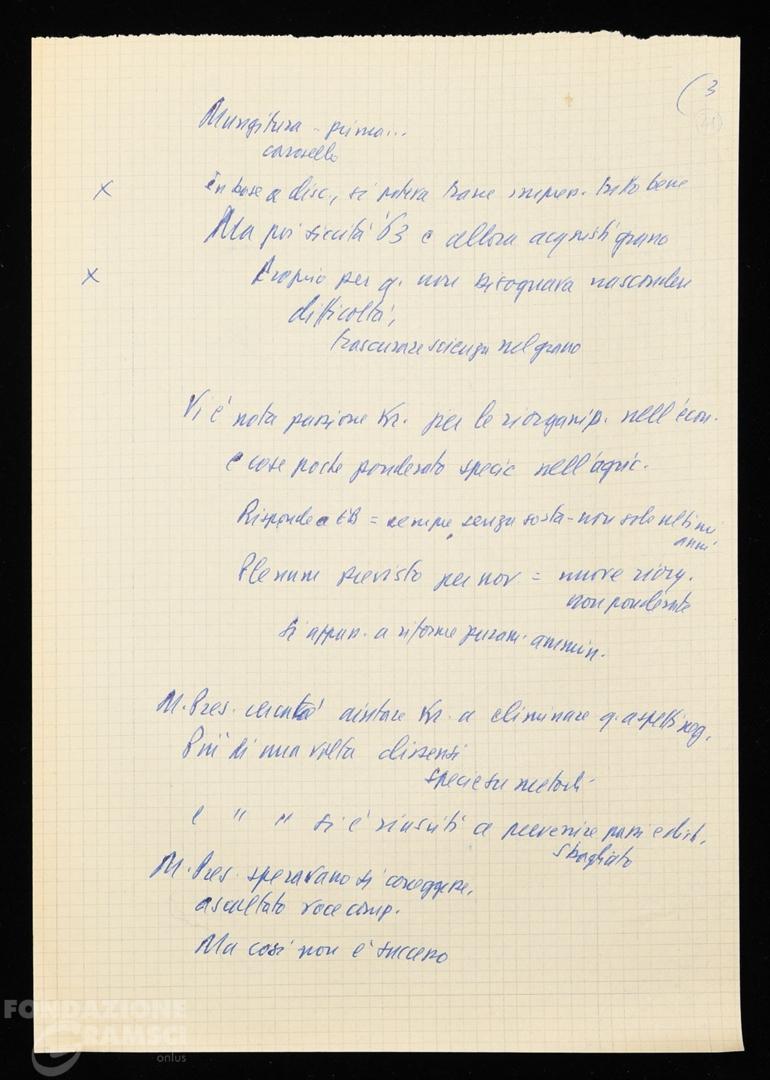 (3
(41)
Mungitura - prima...
carosello
X In base a disc., si poteva trarre impres. tutto bene
Ma poi siccità '63 e allora acquisti grano
X Proprio per q. non bisognava nascondere
difficoltà,
trascurare scienza nel grano
Vi è nota passione Kr. per le riorganizz. nell'econ.
e cose poche ponderato specie nell'agric.
Risponde a EB = sempre senza sosta - non solo ultimi
anni
Plenum previsto per nov = nuove riorg.
non ponderate
si appun. a riforme puram. ammin.
M. Pres. cercato aiutare Kr. a eliminare q. aspetti neg.
Più di una volta dissensi
specie su metodi
e " " si è riusciti a prevenire passi e dich.
sbagliato
M. Pres. speravano si correggesse,
ascoltato voce comp.
Ma così non è successo
FONDAZIONE
GRAMSCI
onlus